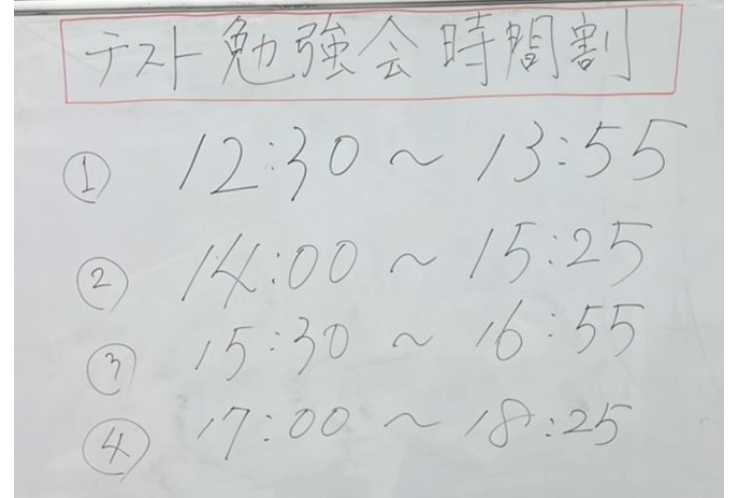 テスト勉強会時間割
① 12:30 ~ 13:55
② 14:00 ~ 15:25
③ 15:30 ~ 16:55
④ 17:00 ~ 18:25